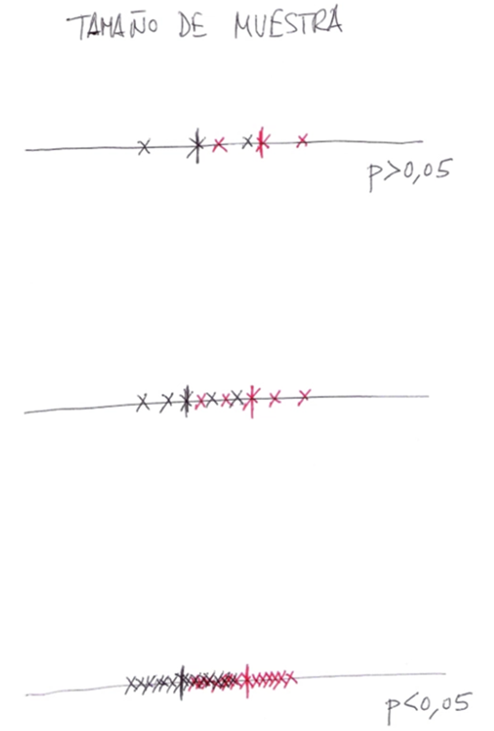 TAMAÑO DE MUESTRA
p>0,05
p<0,05